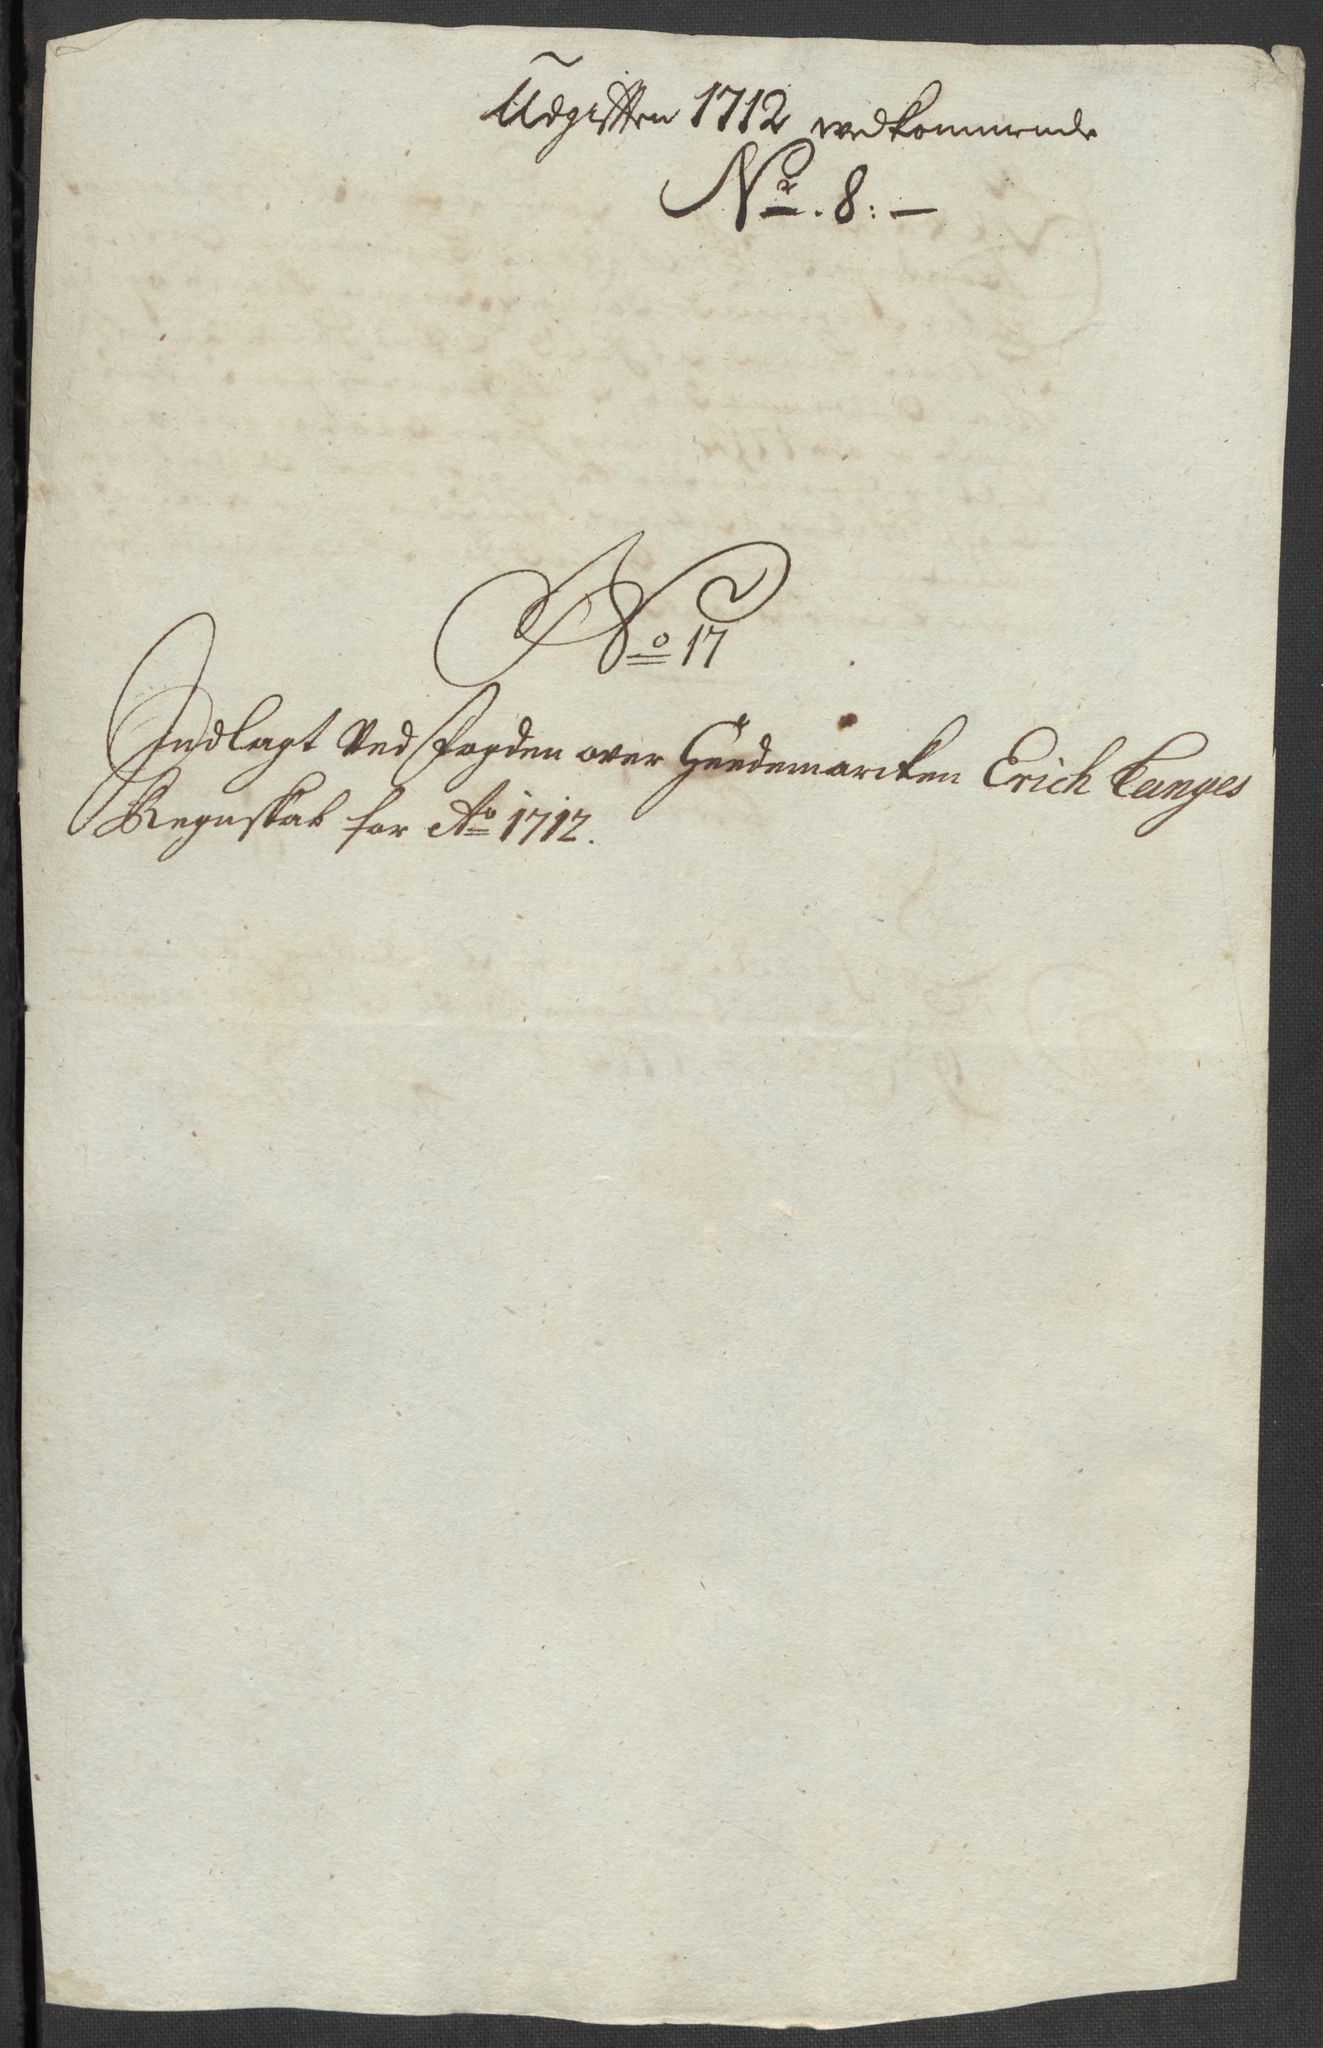 Udgifften 1712 vedkommende
No. 8: —
No 17
Indlagt Ved Fogden over Heedemarcken Erich Lunges
Regnskab for Ao 1712.